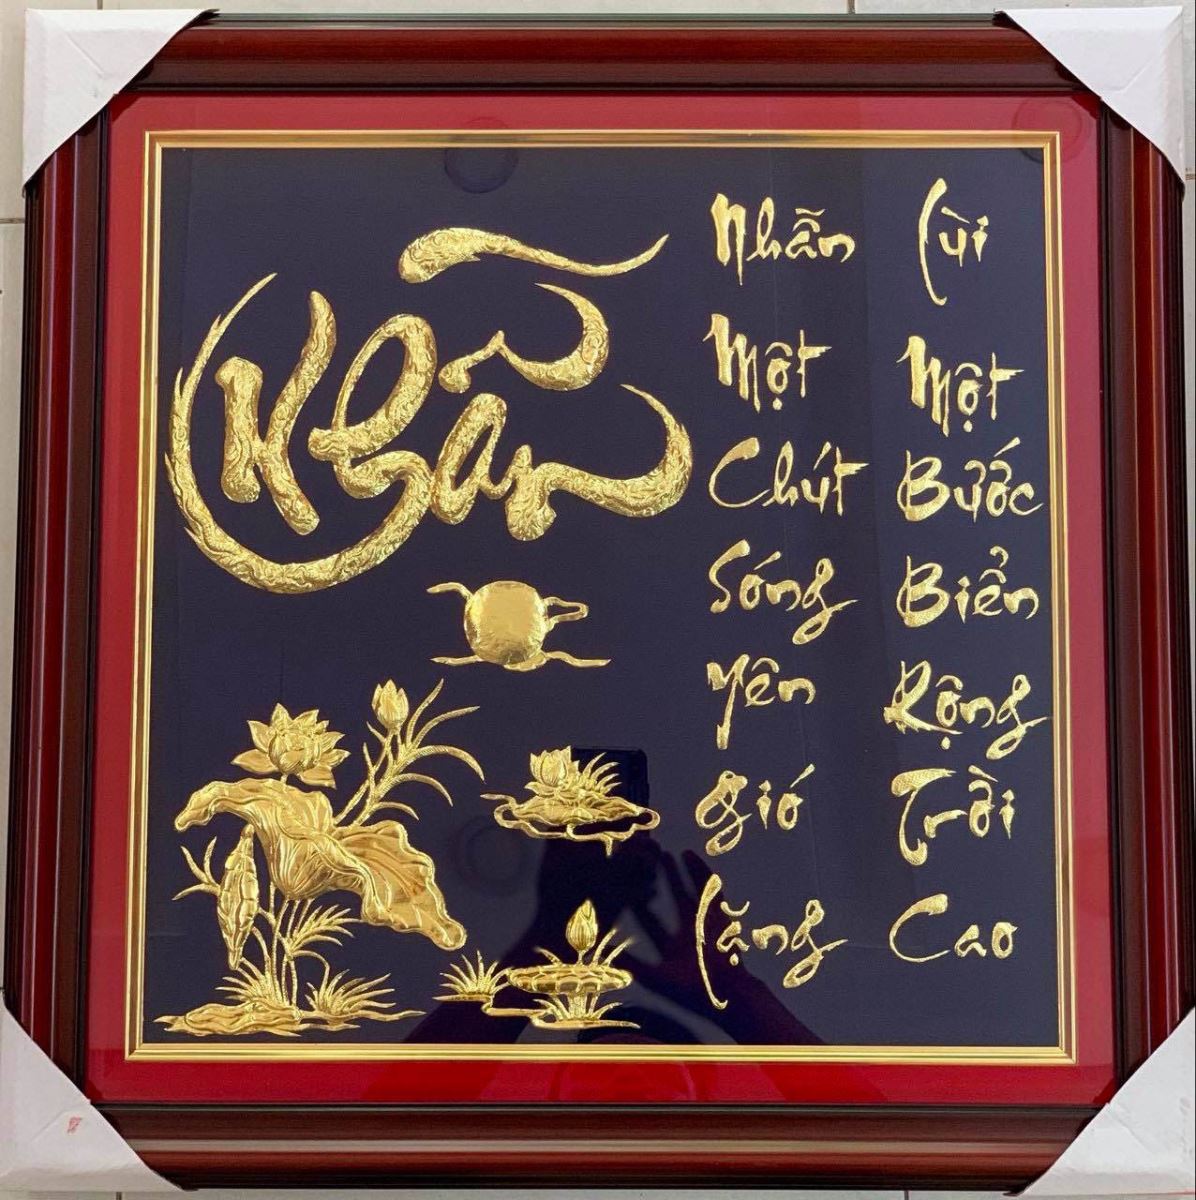 Nhẫn
Nhẫn
Một
Chút
Sóng
Yên
Gió
Lặng
Lùi
Một
Bước
Biển
Rộng
Trời
Cao